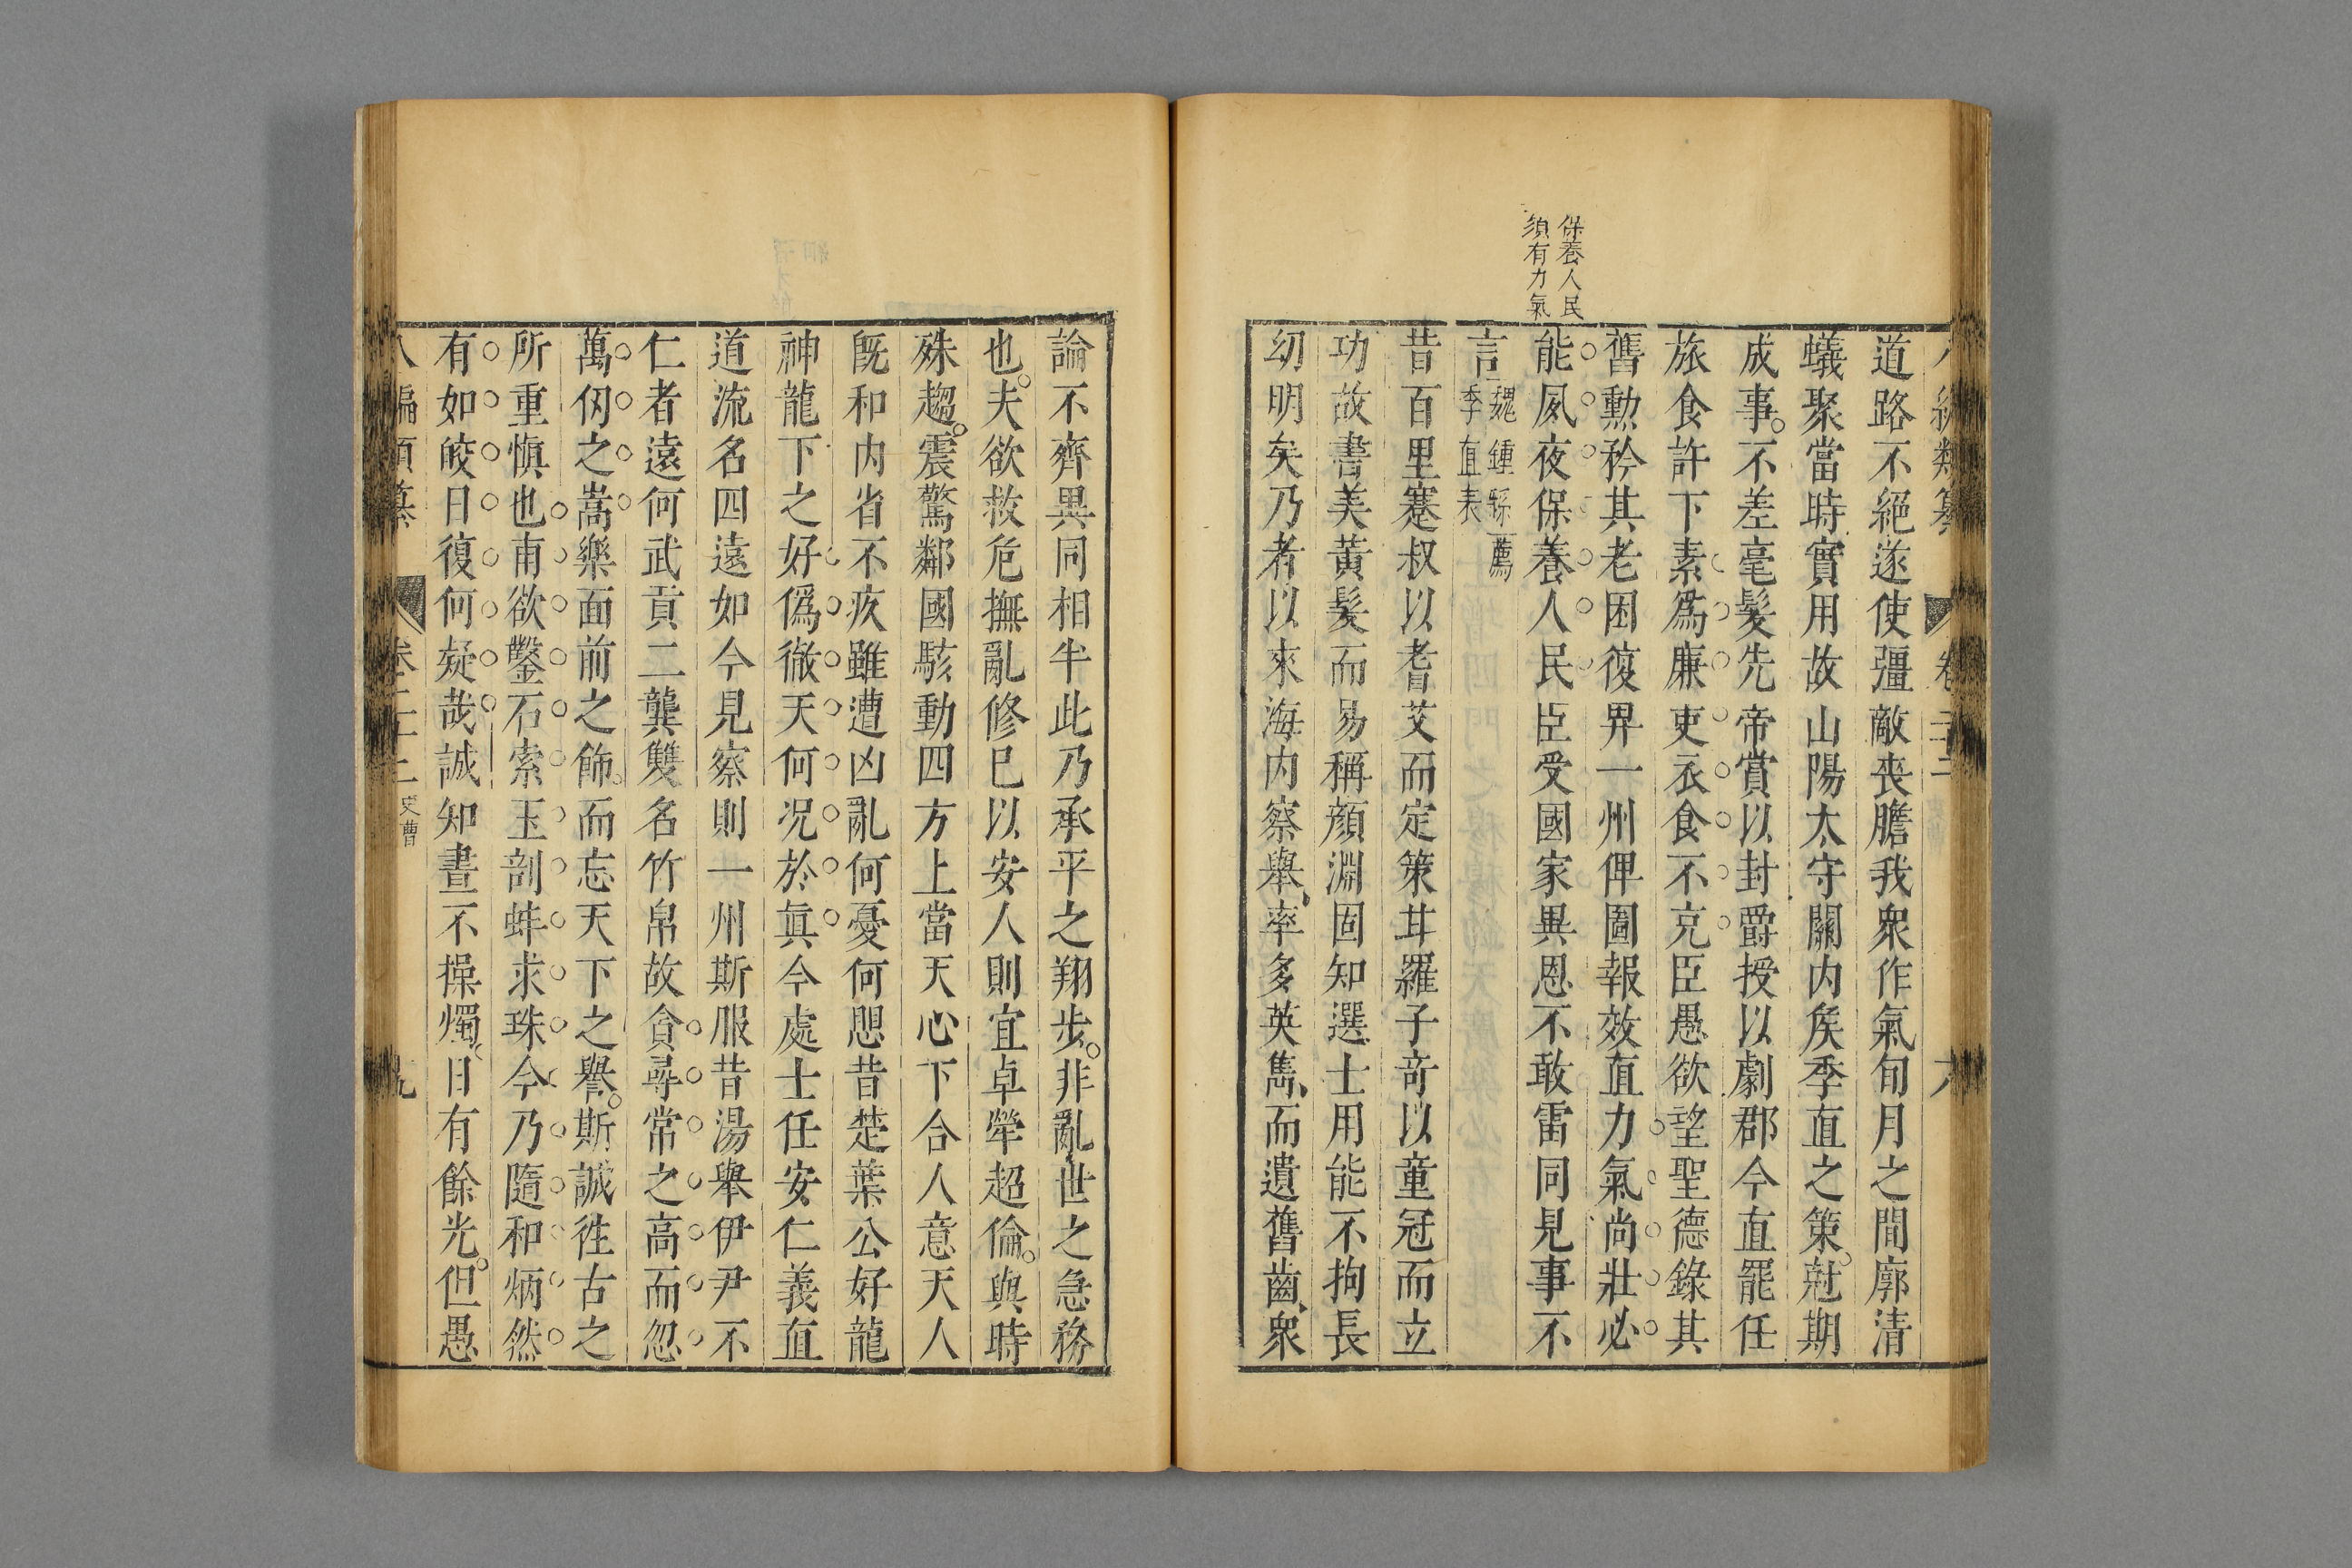 保養人民
須有力氣
道路不絕遂使彊敵喪膽我衆作氣旬月之間廓清
蟻聚當時實用故山陽太守關内矦季直之策尅期
成事不差毫髮先帝賞以封爵授以劇郡今直罷任
旅食許下素爲廉吏衣食不充臣愚欲望聖德錄其
舊勲矜其老困復畀一州俾圖報效直力氣尚壯必
能夙夜保養人民臣受國家異恩不敢雷同見事不
言魏鍾繇薦
季直表
昔百里蹇叔以耆艾而定策甘羅子奇以童冠而立
功故書美黃髮而易稱顔淵固知選士用能不拘長
幼明矣乃者以來海内察舉率多英雋而遺舊齒衆
論不齊異同相半此乃承平之翔步非亂世之急務
也夫欲救危撫亂修已以安人則宜卓犖超倫與時
殊趨震驚鄰國駭動四方上當天心下合人意天人
旣和内省不疚雖遭凶亂何憂何思昔楚葉公好龍
神龍下之好僞徹天何况於眞今處士任安仁義直
道流名四遠如今見察則一州斯服昔湯舉伊尹不
仁者遠何武貢二龔雙名竹帛故貪尋常之高而忽
萬仭之嵩樂面前之飾而忘天下之譽斯誠徃古之
所重愼也甫欲鑿石索玉剖蚌求珠今乃隨和炳然
有如皎日復何疑哉誠知晝不操燭日有餘光但愚
卷二十二 吏曹 九